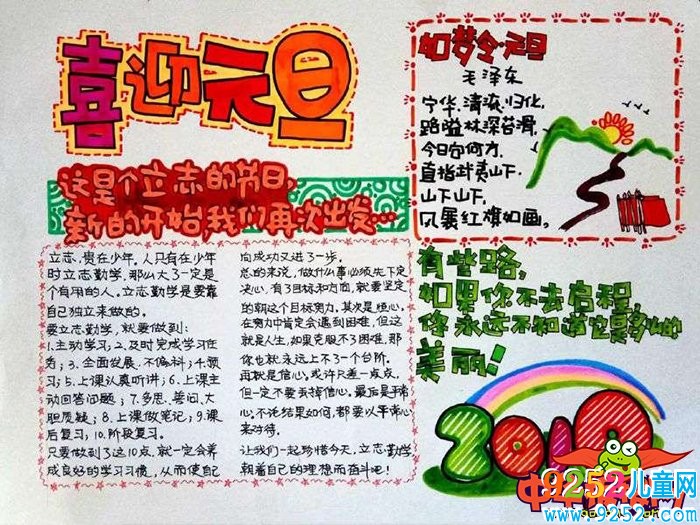 喜迎元旦
这是个立志的节日,
新的开始,我们再次出发…
立志,贵在少年。人只有在少年
时立志勤学,那么大了一定是
个有用的人。立志勤学是要靠
自己独立来做的。
要立志勤学,就要做到:
1.主动学习;2.及时完成学习任
务;3.全面发展、不偏科;4.预
习;5.上课认真听讲;6.上课主
动回答问题;7.多思、善问、大
胆质疑;8.上课做笔记;9.课
后复习;10.阶段复习。
只要做到了这10点,就一定会养
成良好的学习习惯,从而使自己
向成功又进了一步。
总的来说,做什么事必须先下定
决心,有了目标和方向,就要坚定
的朝这个目标努力。其次是恒心。
在努力中肯定会遇到困难,但这
就是人生,如果克服不了困难,那
你也就永远上不了一个台阶。
再就是信心。或许只差一点点,
但一定不要丢掉信心。最后是平常
心,不论结果如何,都要以平常心
来对待。
让我们一起珍惜今天,立志勤学
朝着自己的理想而奋斗吧!
如梦令·元旦
毛泽东
宁化、清流、归化,
路隘林深苔滑。
今日向何方,
直指武夷山下。
山下山下,
风展红旗如画。
有些路,
如果你不去启程,
你永远不知道它是多么的
美丽!
9252儿童网
www.9252.com